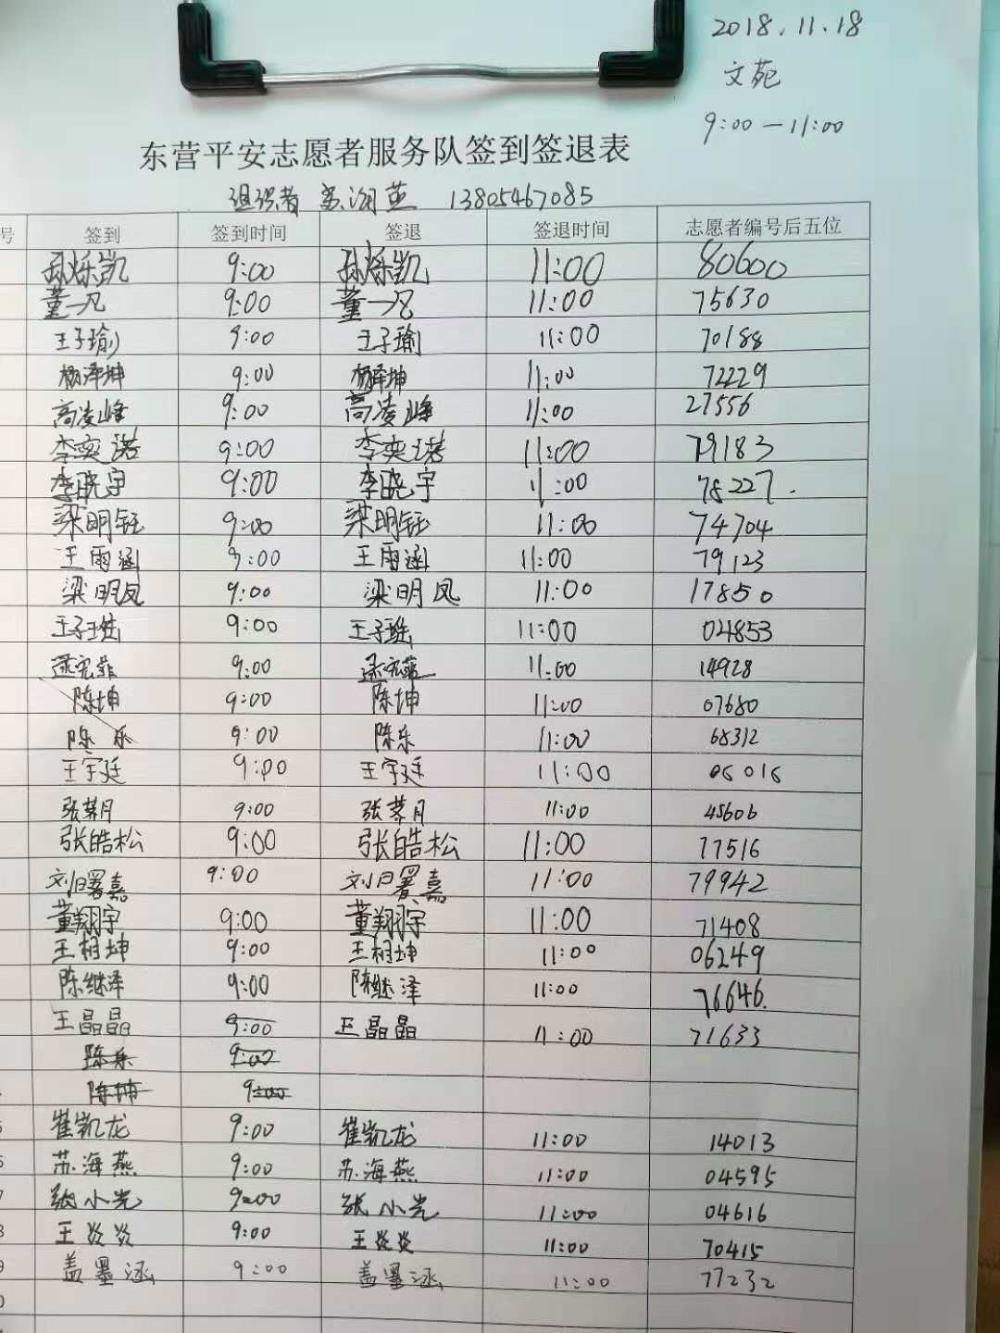 2018.11.18
文苑
9:00—11:00
东营平安志愿者服务队签到签退表
组织者 13805467085
号 签到 签到时间 签退 签退时间 志愿者编号后五位
孙烁凯 9:00 孙烁凯 11:00 80600
董一凡 9:00 董一凡 11:00 75630
王子瑜 9:00 王子瑜 11:00 70188
杨泽坤 9:00 杨泽坤 11:00 72229
高凌峰 9:00 高凌峰 11:00 27556
李奕诺 9:00 李奕诺 11:00 79183
李晓宇 9:00 李晓宇 11:00 78227.
梁明钰 9:00 梁明钰 11:00 74704
王雨涵 9:00 王雨涵 11:00 79123
梁明凤 9:00 梁明凤 11:00 17850
王子瑶 9:00 王子瑶 11:00 04853
9:00 11:00 14928
陈坤 9:00 陈坤 11:00 07680
陈乐 9:00 陈乐 11:00 68312
王宇廷 9:00 王宇廷 11:00 06016
张菶月 9:00 张菶月 11:00 45606
张皓松 9:00 张皓松 11:00 77516
刘曙嘉 9:00 刘曙嘉 11:00 79942
董翔宇 9:00 董翔宇 11:00 71408
王相坤 9:00 王相坤 11:00 06249
陈继泽 9:00 陈继泽 11:00 76646.
王晶晶 9:00 王晶晶 11:00 71633
陈乐 9:00
陈坤 9:00
崔凯龙 9:00 崔凯龙 11:00 14013
苏海燕 9:00 苏海燕 11:00 04595
张小光 9:00 张小光 11:00 04616
王炎炎 9:00 王炎炎 11:00 70415
盖墨涵 9:00 盖墨涵 11:00 77232